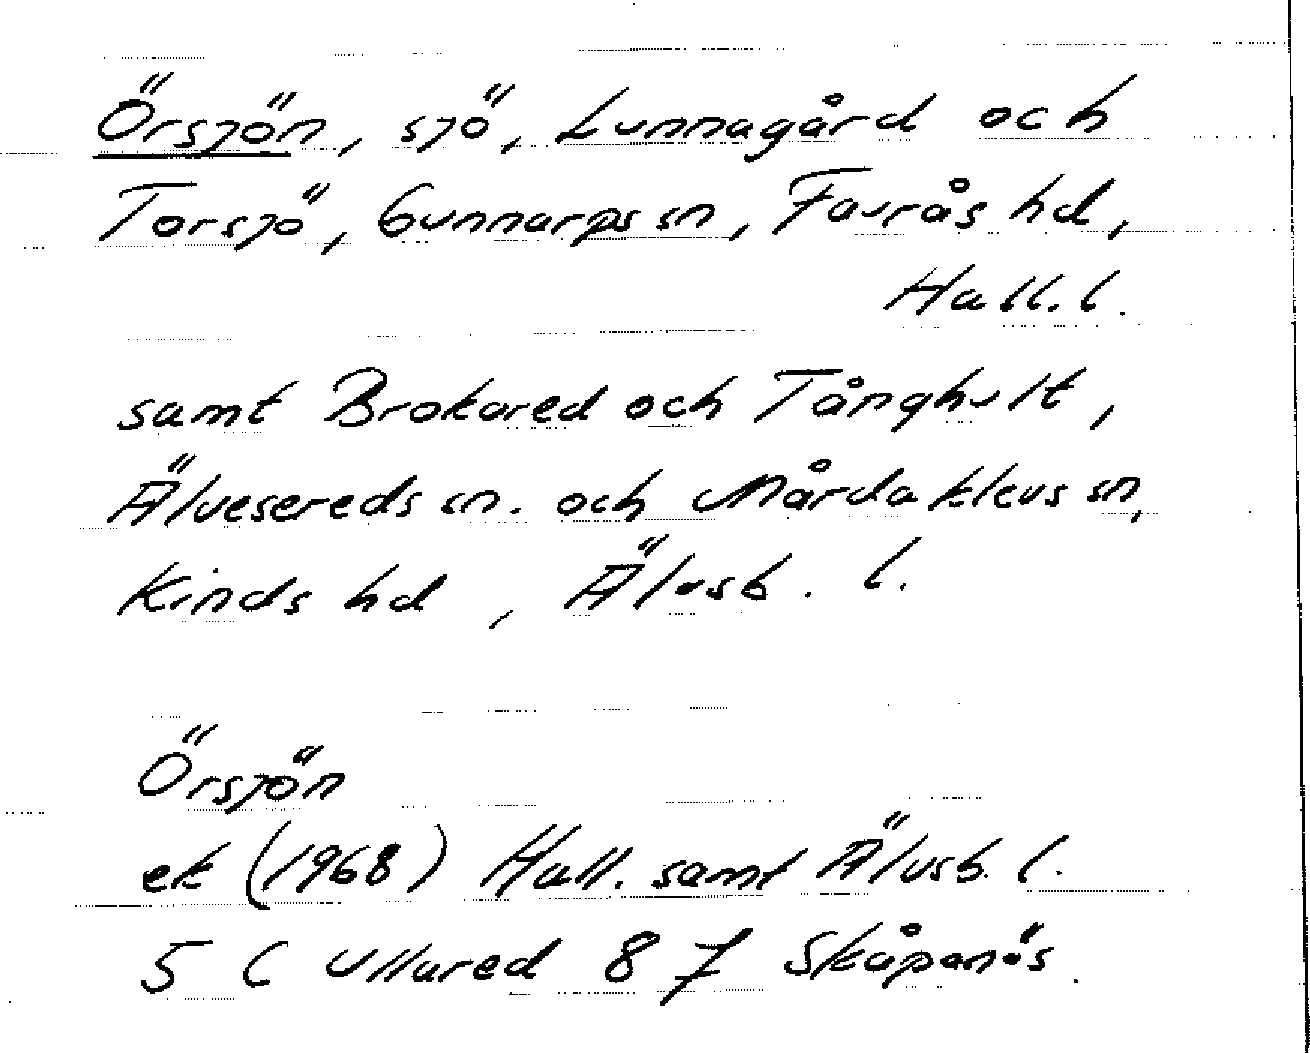 Örsjön, sjö, Lunnagård och
Torsjö, Gunnarps sn, Faurås hd,
Hall. l.
samt Brokared och Tånghult,
Älvsereds sn. och Mårdaklevs sn,
Kinds hd, Älvsb. l.
Örsjön
ek (1968) Hall. samt Älvsb. l.
5 C Ullared 8 7 Skåpanäs